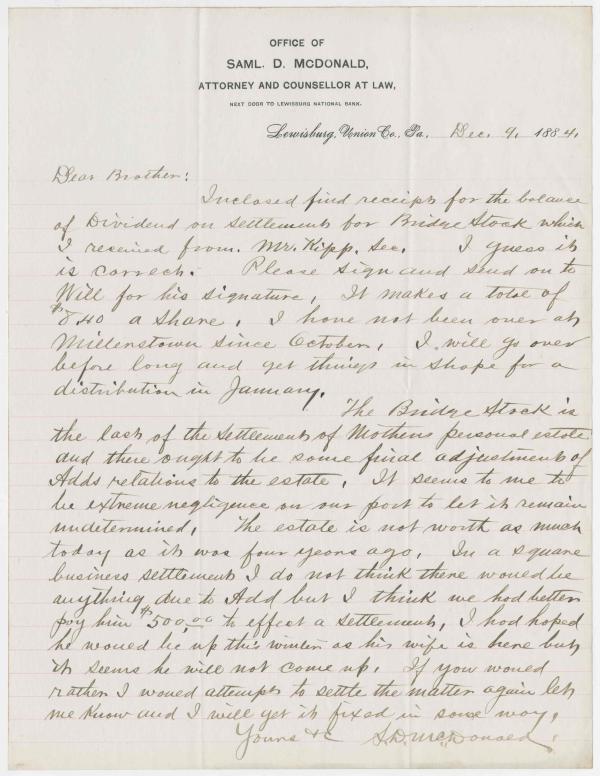 OFFICE OF
SAML. D. MCDONALD,
ATTORNEY AND COUNSELLOR AT LAW,
NEXT DOOR TO LEWISBURG NATIONAL BANK.
Lewisburg, Union Co., Pa. Dec. 9, 1884.
Dear Brother:
Inclosed find receipt for the balance
of Dividend on settlement for Bridge Stock which
I received from Mr. Kipp, Sec. I guess it
is correct. Please sign and send on to
Will for his signature, It makes a total of
$8.40 a share. I have not been over at
Millerstown since October, I will go over
before long and get things in shape for a
distribution in January.
The Bridge Stock is
the last of the settlement of Mothers personal estate
and there ought to be some final adjustment of
Adds relations to the estate. It seems to me to
be extreme negligence on our part to let it remain
undetermined, The estate is not worth as much
today as it was four years ago. In a square
business settlement I do not think there would be
anything due to Add but I think we had better
pay him $500.00 to effect a settlement, I had hoped
he would be up this winter as his wife is here but
it seems he will not come up. If you would
rather I would attempt to settle the matter again let
me know and I will get it fixed in some way,
Yours &c S.D. McDonald